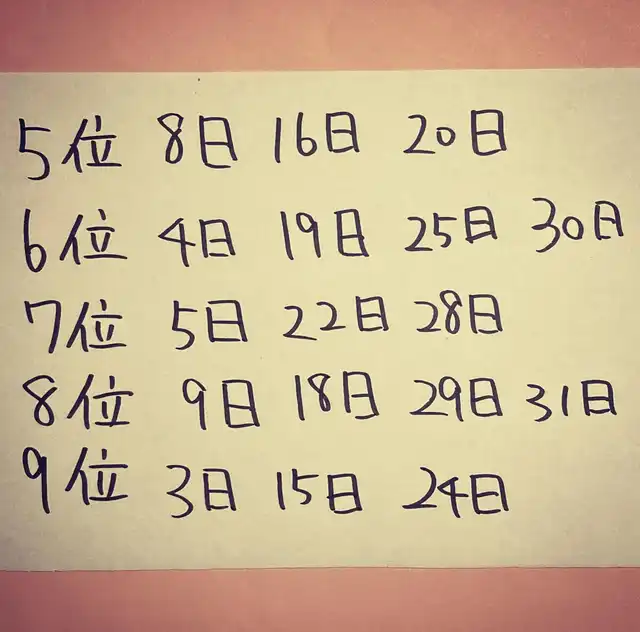 5位 8日 16日 20日
6位 4日 19日 25日 30日
7位 5日 22日 28日
8位 9日 18日 29日 31日
9位 3日 15日 24日